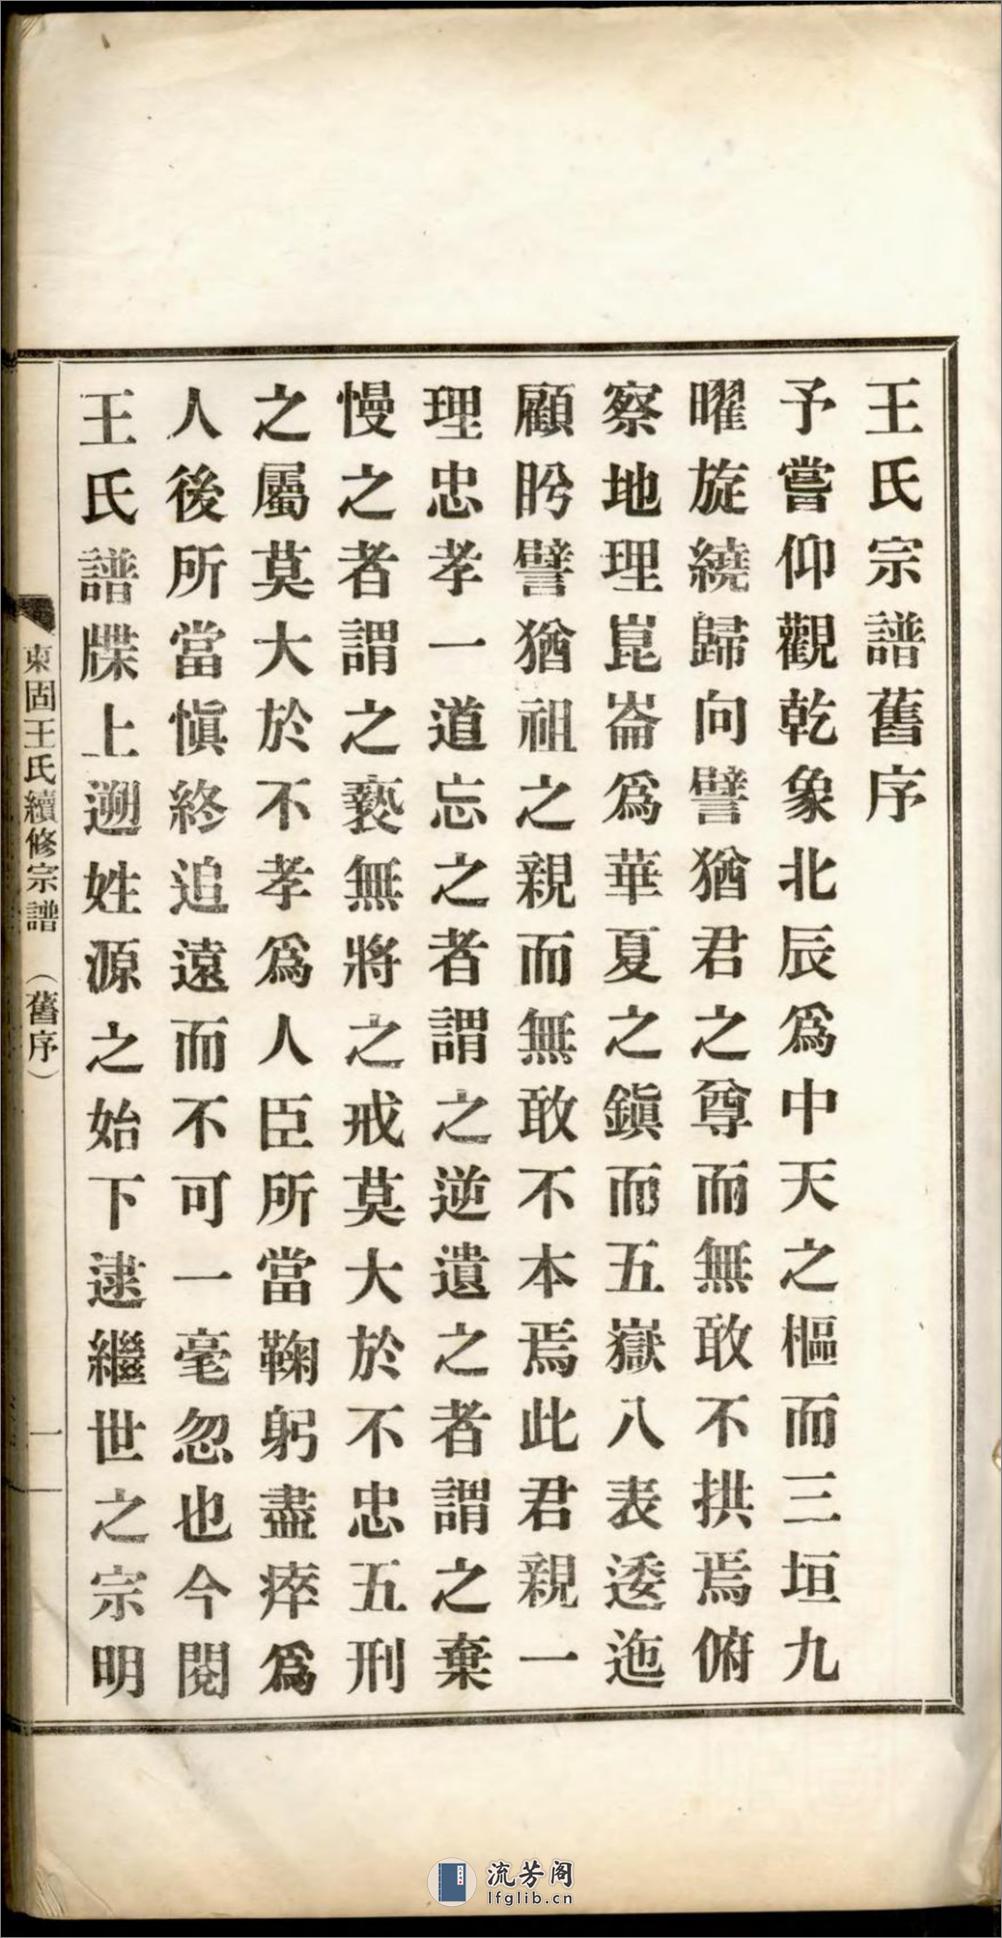 王氏宗譜舊序
予嘗仰觀乾象北辰爲中天之樞而三垣九
曜旋繞歸向譬猶君之尊而無敢不拱焉俯
察地理崑崙爲華夏之鎭而五嶽八表逶迤
顧盻譬猶祖之親而無敢不本焉此君親一
理忠孝一道忘之者謂之逆遺之者謂之棄
慢之者謂之褻無將之戒莫大於不忠五刑
之屬莫大於不孝爲人臣所當鞠躬盡瘁爲
人後所當愼終追遠而不可一毫忽也今閱
王氏譜牒上遡姓源之始下逮繼世之宗明
東固王氏續修宗譜 （舊序） 一
流芳阁
lfglib.cn